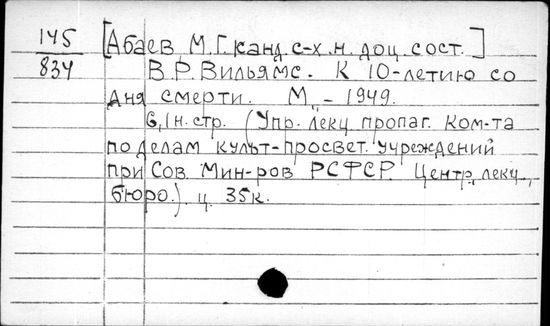 145
834
[Абаев, М.Г. канд. с-х. н. доц. сост.]
В.Р. Вильямс. К 10-летию со
дня смерти. М., - 1949.
6,1н.стр. (Упр. лекц. пропаг. Ком-та
по делам культ-просвет. учреждений
при Сов. Мин-ров РСФСР. Центр. лекц.
бюро.). ц. 35к.